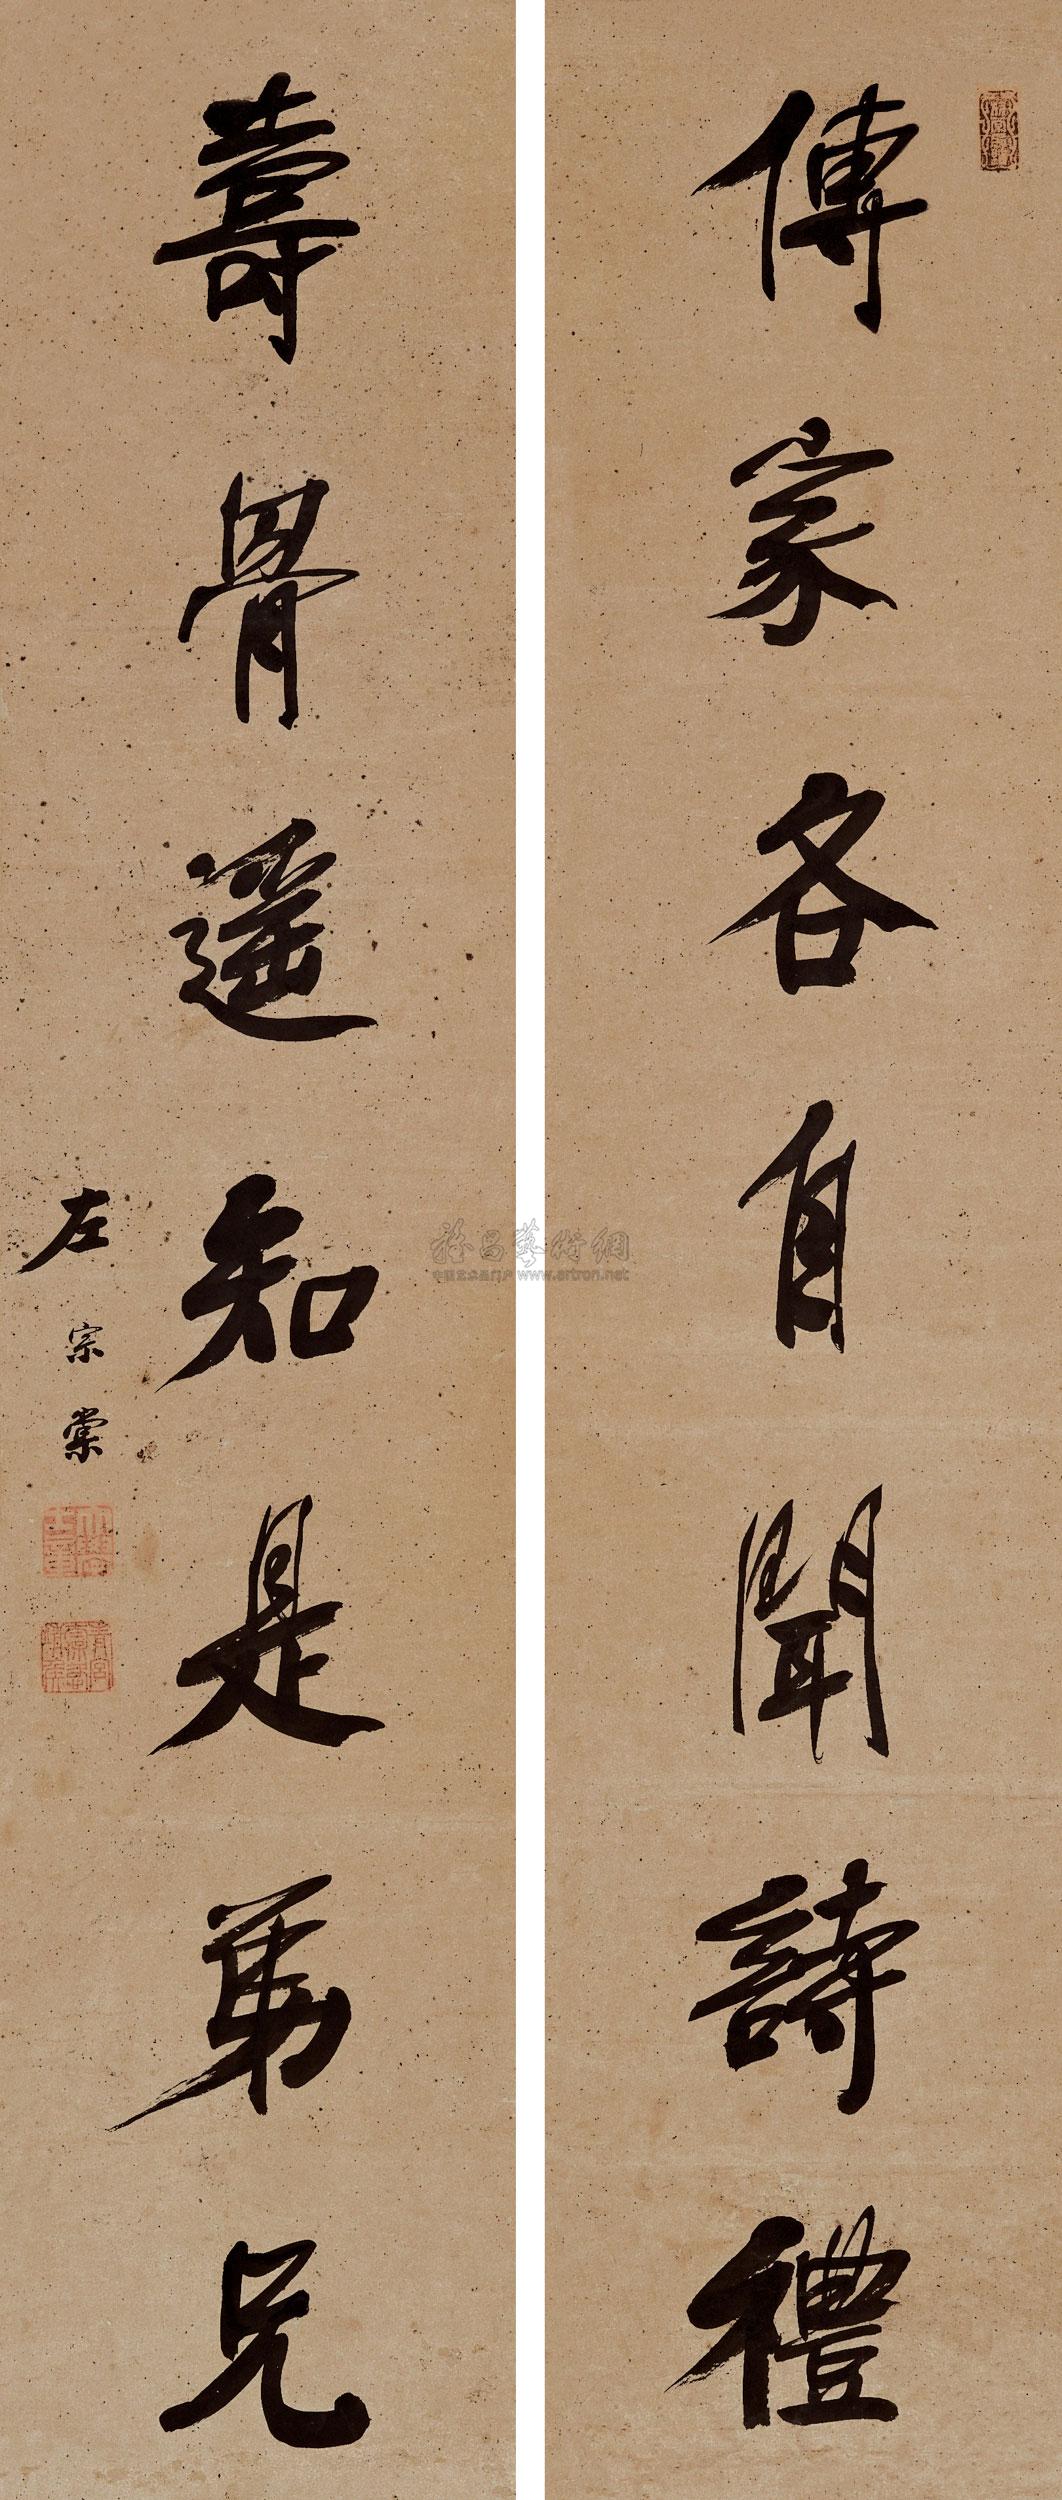 傳家各自聞詩禮
壽骨遥知是弟兄
左宗棠
雅昌藝術網
中国艺术品门户 www.artron.net